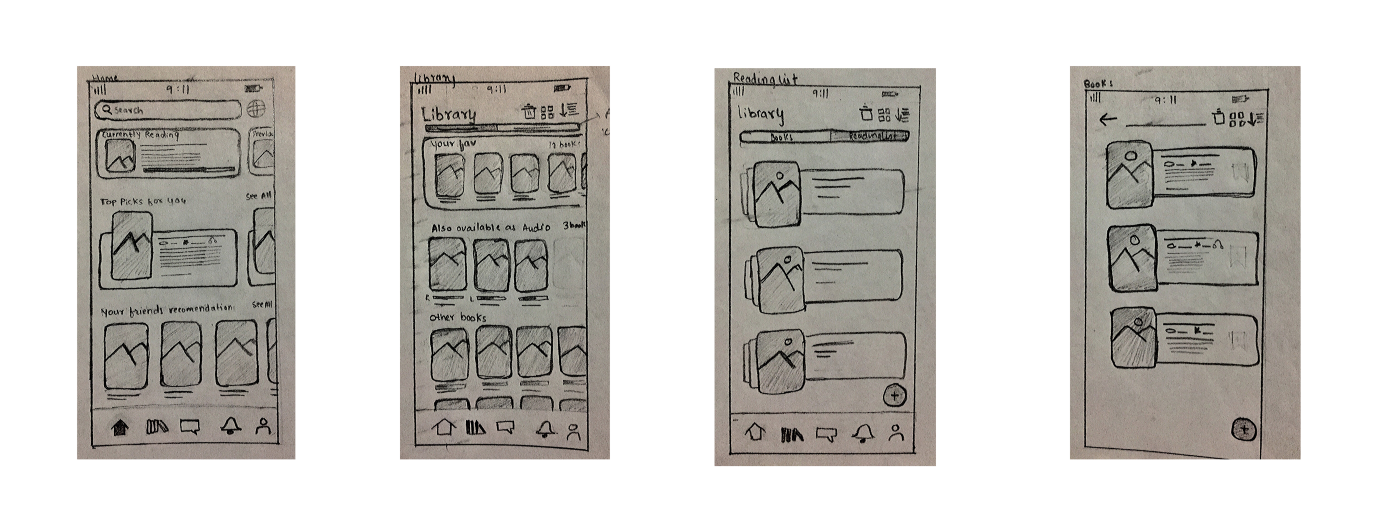 Home
9:11
Search
Currently Reading
Top Picks for you
See All
Your friends recomendation
See All
library
9:11
Library
Your fav
12 book
Also available as Audio
3 book
Other books
Reading list
9:11
library
Books
Reading list
Books
9:11